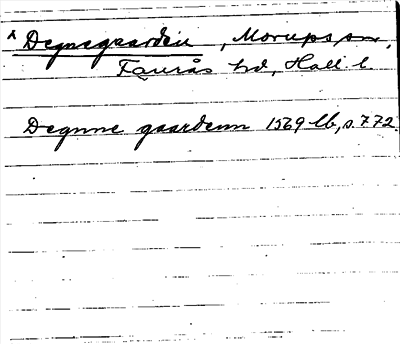 ^ Degnegaarden, Morups sn,
Faurås hd, Hall. l.
Degnne gaardenn 1569 lb, s. 772.